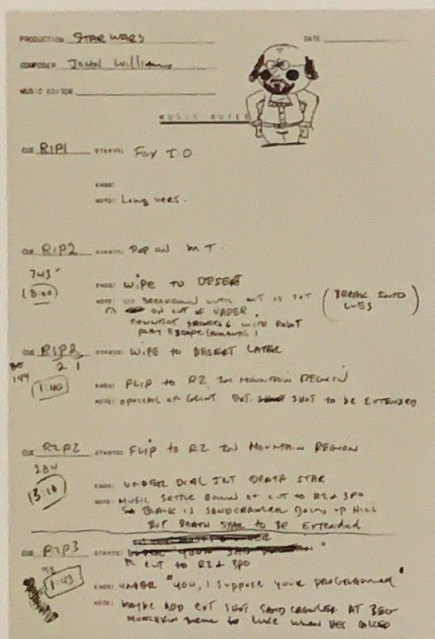 PRODUCTION STAR WARS DATE
COMPOSER John Williams
MUSIC EDITOR
MUSIC NOTES
CUE R1P1 STARTS: Fox I.D
ENDS:
NOTE: Long vers.
CUE R1P2 STARTS: Pop on M.T.
743
ENDS: WIPE TO DESERT
NOTE: NO BREAKDOWN UNTIL CUT IS SET (BREAK INTO CUES)
ON CUT OF VADER
CONNECT DRONES WITH ROBOT
PLAY ESCAPE
CUE STARTS: WIPE TO DESERT LATER
2 1
144
1:40
ENDS: FLIP TO R2 IN MOUNTAIN REGION
NOTE: OPTICAL OF GLINT EXT. SHOT TO BE EXTENDED
CUE R2P2 STARTS: FLIP TO R2 IN MOUNTAIN REGION
284
13:10
ENDS: UNDER DIAL INT DEATH STAR
NOTE: MUSIC SETTLE DOWN AT CUT TO R2 & 3PO
BLACK IS SANDCRAWLER DOWN UP HILL
EXT DEATH STAR TO BE EXTENDED
CUE R2P3 STARTS:
CUT TO R2 & 3PO
1:43
ENDS: UNDER "YOU, I SUPPOSE YOUR PROGRAMMED"
NOTE: MAYBE ADD EXT SHOT SANDCRAWLER AT BEG
TO LUKE WHEN HES CALLED